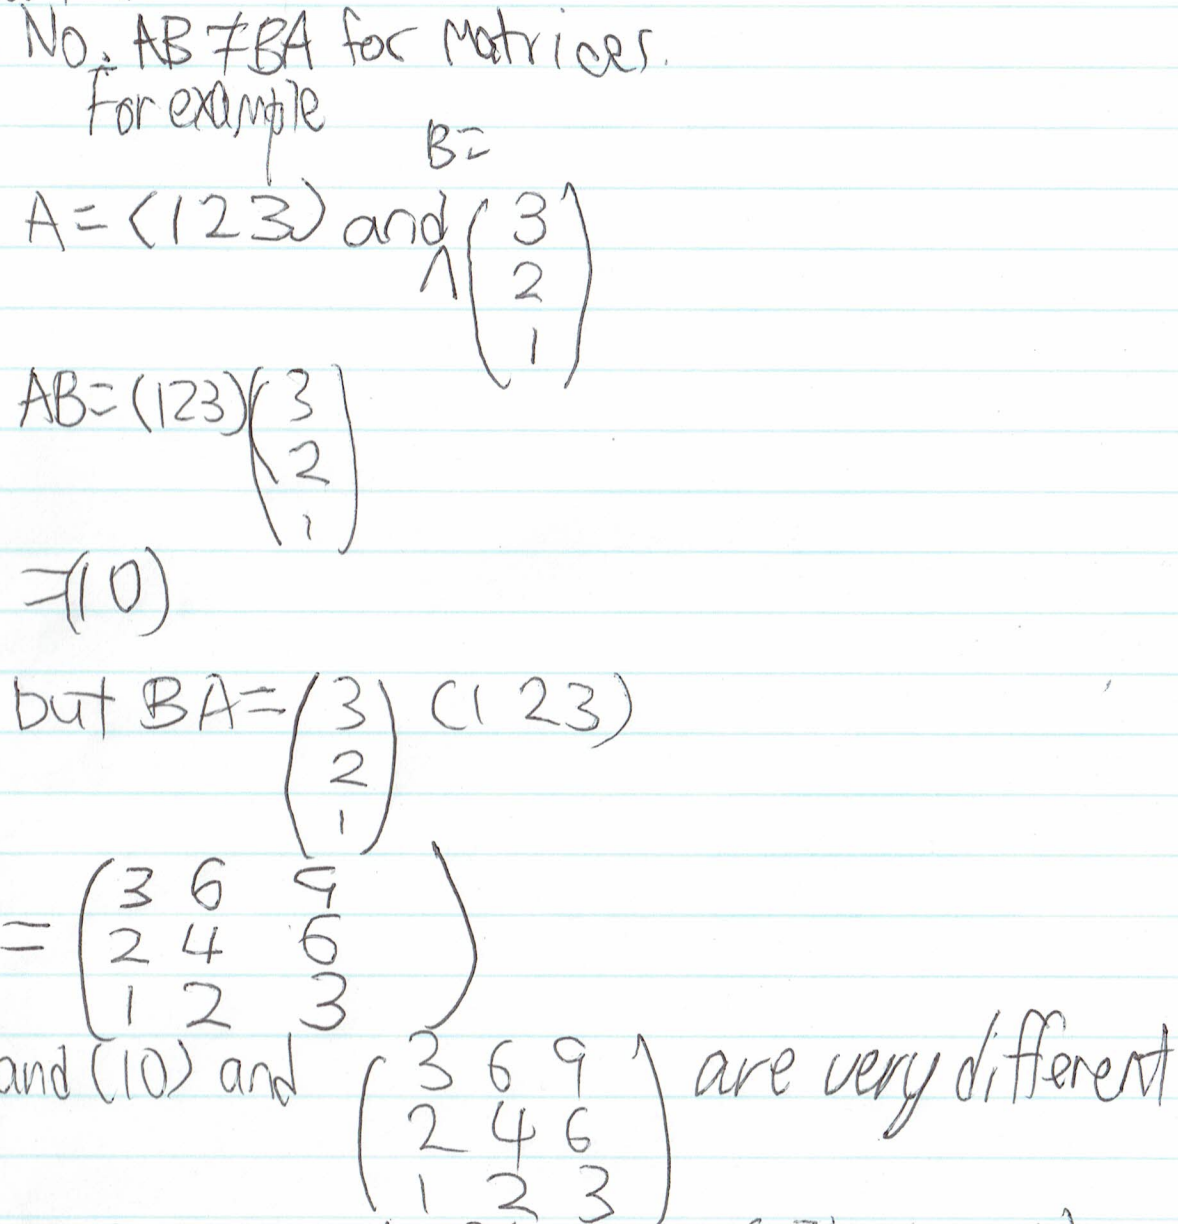 No. AB≠BA for matrices.
For example
B=
A=(123) and (3
2
1)
AB=(123)(3
2
1)
=(10)
but BA=(3
2
1) (1 2 3)
=(3 6 9
2 4 6
1 2 3)
and (10) and (3 6 9
2 4 6
1 2 3) are very different